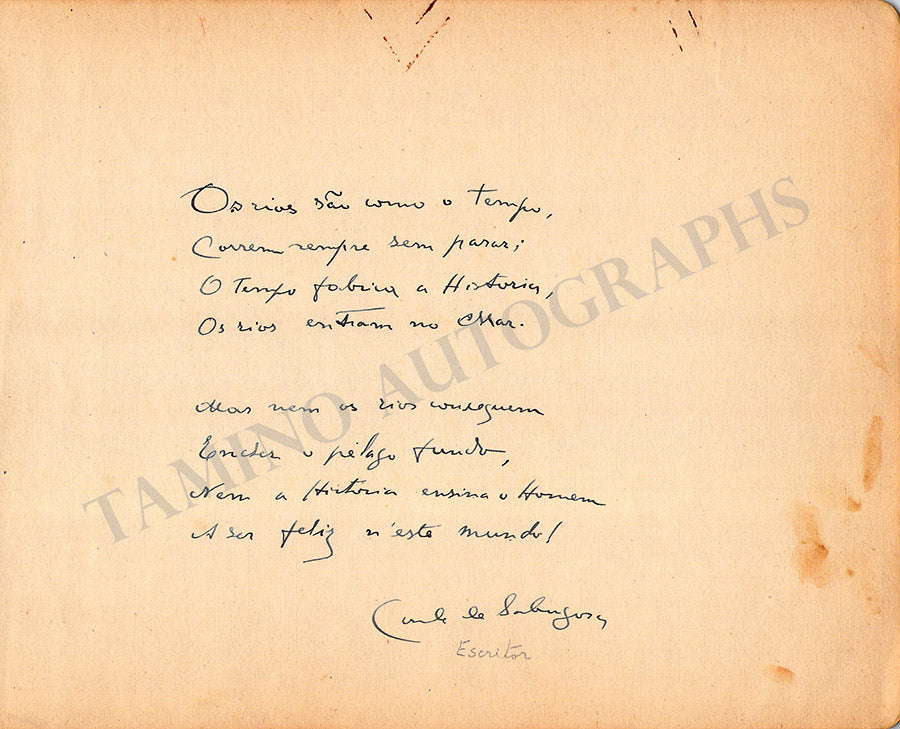 Os rios são como o tempo,
Correm sempre sem parar;
O Tempo fabrica a Historia,
Os rios entram no Mar.
Mas nem os rios conseguem
Encher o pélago fundo,
Nem a Historia ensina o Homem
A ser feliz n'este mundo!
Conde de Sabugosa
Escritor
TAMINO AUTOGRAPHS